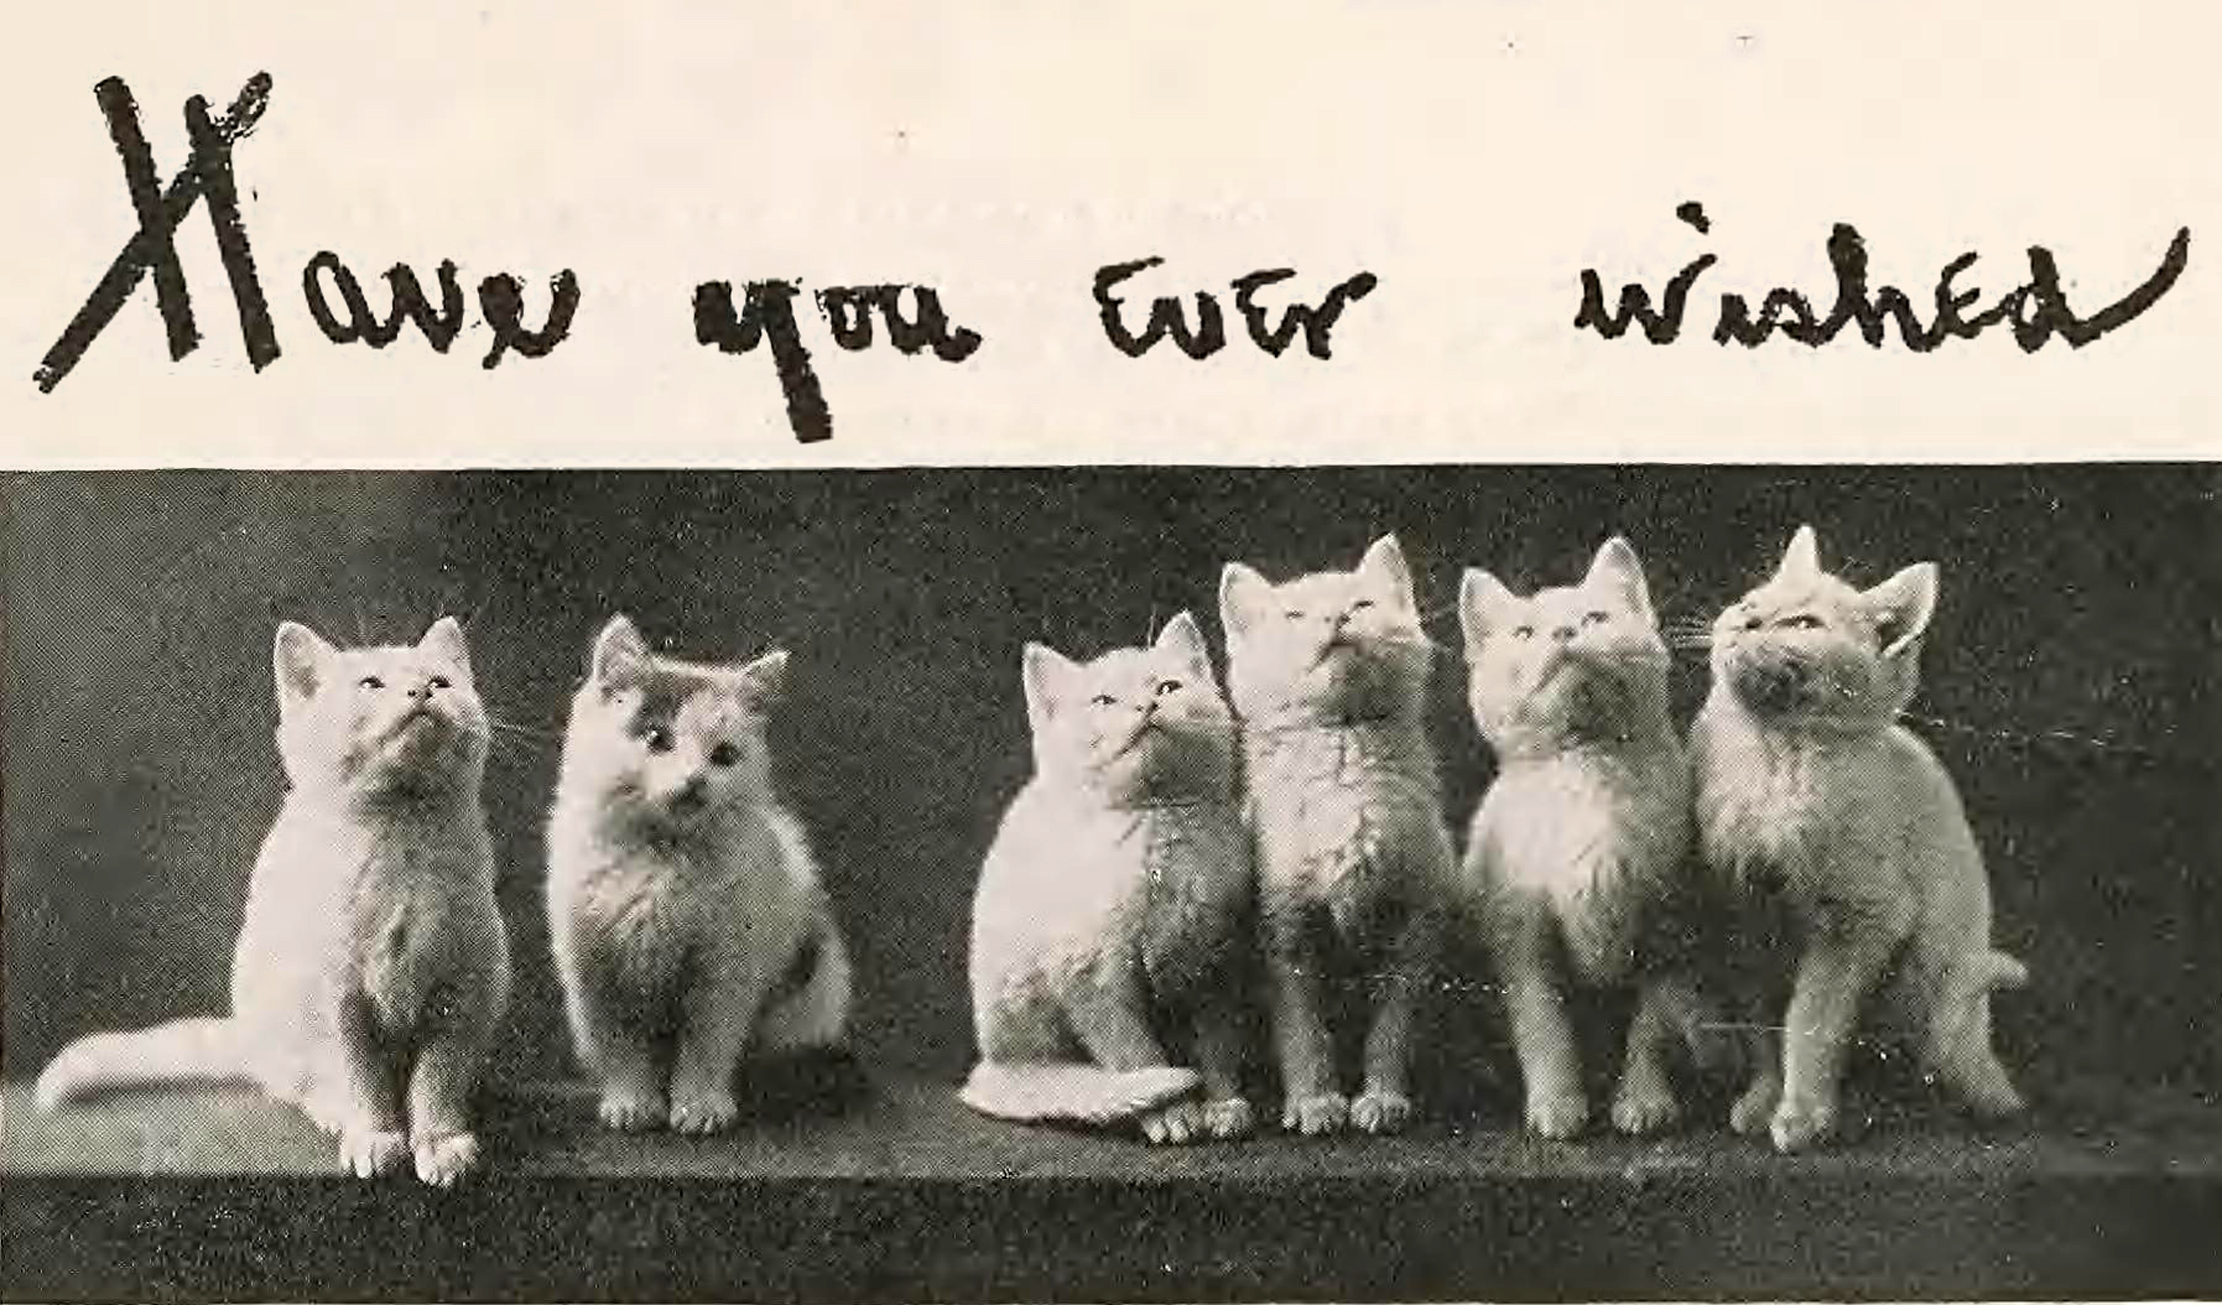 Have you ever wished